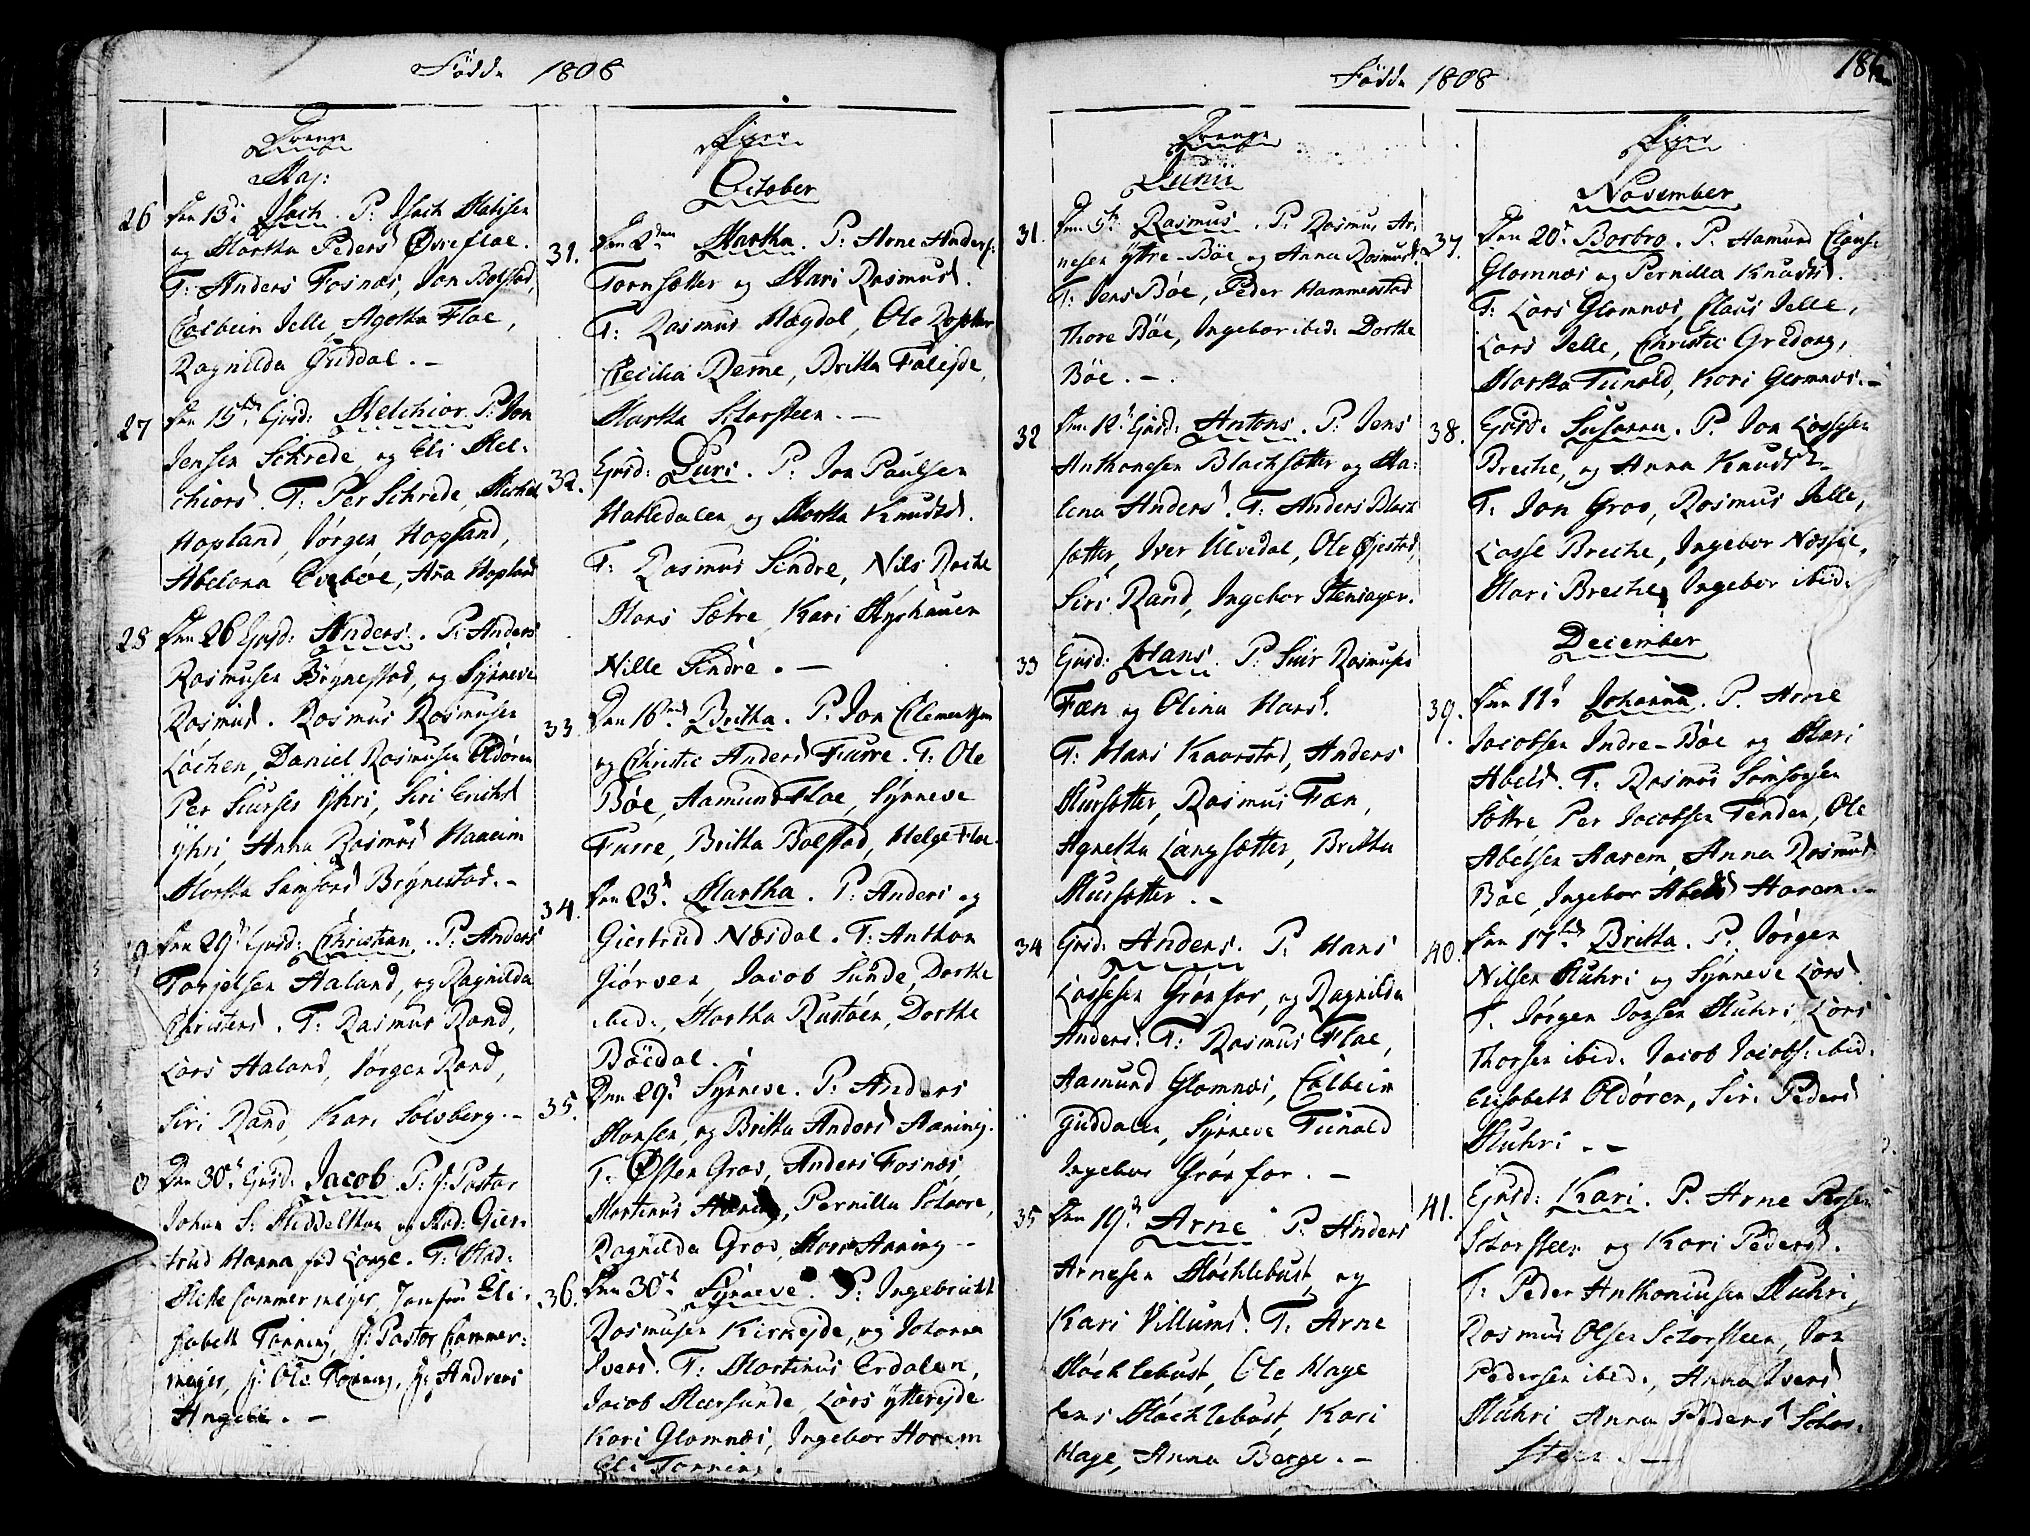 Fødde 1808
Drenge
Maj:
26 Den 13de Isach. P: Isach Mathisen
og Martha Peders Øvrefloe.
T: Anders Fosnæs, Jon Bolstad,
Colbein Jelle, Agotha Floe,
Ragnilda Guddal. -
27 Den 15de Ejusd: Melchior. P. Jon
Jensen Schrede og Eli Mel-
chiors. T. Per Schrede,
Hopland, Jørgen Hopland,
Abelona Evebøe, Aña Hopland
28 Den 26 Ejusd: Anders. P: Anders
Rasmusen Brÿnestad, og Sÿnneve
Rasmusd. Rasmus Rasmusen
Løchen, Daniel Rasmusen Oldøren
Per Siurses Ÿhri, Siri Erichsd
Ÿhri, Anna Rasmusd Haaeim
Martha Samsonsd Brÿnestad. -
9 Den 29d Ejusd: Christian. P: Anders
Torjelsen Aaland, og Ragnilda
Christens. T: Rasmus Rand,
Lars Aaland, Jørgen Rand,
Siri Rand, Kari Solsberg. -
0 Den 30te Ejusd: Jacob. P: Hr: Pastor
Johan S: Middelthon og Mad: Gier-
trud Hanna fød Lange. T: Mad:
Mette Commermejer, Jomfru Eli-
sabeth Tønning, Hr: Pastor Commer-
mejer, Hr: Ole Tønning, Hr: Andreas
Angell. -
Piger
October
31. Den 2den Martha. P: Arne Anders:
Tornsætter og Mari Rasmusd.
T: Rasmus Mægdal, Ole
Cecilia Reme, Britha Falejde,
Martha Storsteen. -
32. Ejusd: Guri. P: Jon Paulsen
Hattedalen, og Martha Knudsd.
T: Rasmus Sindre, Nils Rache
Mons Sætre, Kari Myrhauen
Nille Sindre. -
33. Den 16de Britha. P. Jon Clementsen
og Christie Andersd Furre. T: Ole
Bøe, Aamund Floe, Sÿnneve
Furre, Britha Bolstad, Helge Floe.
34. Den 23d Martha. P: Anders og
Giertrud Næsdal. T: Anthon
Giørven, Jacob Sunde, Dorthe
ibid:, Martha Rustøen, Dorthe
Bøedal.
35. Den 29d Sÿnneve. P: Anders
Monsen, og Britha Andersd Hæning.
T: Østen Gros, Anders Fosnæs,
Martinus Hæning, Pernilla Sølvore,
Ragnilda Gros, Mari Hæning -
36. Den 30te Sÿnneve. P: Ingebricht
Rasmusen Kirkejde, og Johanna
Iversd. T: Martinus Erdalen,
Jacob Meersunde, Lars Ÿtterejde
Kari Glomnæs, Ingebor Horem
Eli Tønning. -
Fødde 1808
186
Drenge
Junii
31. Den 5te Rasmus. P: Rasmus Ar-
nesen Ÿttre-Bøe og Anna Rasmusd.
T: Jens Bøe, Peder Hammerstad
Thore Bøe, Ingebor ibid: Dorthe
Bøe. -
32 Den 12d Ejusd: Antons. P. Jens
Anthonsen Blachsætter og Ma-
lena Anders. T: Anders Blach
sætter, Iver Ulvedal, Ole Øjestad,
Siri Rand, Ingebor Stensager.
33 Ejusd: Hans. P: Siur Rasmusen
Fæn og Olina Hansd.
T: Hans Kaarstad, Anders
Mursætter, Rasmus Fæn,
Agnetha Langsætter, Britha
Mursætter. -
34 Ejusd: Anders. P. Hans
Lassesen Grønfor, og Ragnilda
Anders. T: Rasmus Floe,
Aamund Glomnæs, Colbein
Guddalen, Sÿnneve Tunold
Ingebor Grønfor. -
35 Den 19d Arne. P: Anders
Arnesen Møchlebust, og
Kari Villumsd. T: Arne
Møchlebust, Ole Hage
Lens Møchlebust, Kari
Hage, Anna Berge. -
Piger
November
37. Den 20d Borbro. P. Aamund Claus:
Glomnæs og Pernilla Knudsd.
T: Lars Glomnæs, Claus Jelle,
Lars Jelle, Christie Gredung,
Martha Tunold, Kari Glomnæs. -
38. Ejusd: Susanna. P. Jon Lassesen
Breche, og Anna Knudsd -
T: Jon Gros, Rasmus Jelle,
Lasse Breche, Ingebor Nessie,
Mari Breche, Ingebor ibid:
December
39. Den 11d Johanna. P. Arne
Jacobsen Indre-Bøe og Mari
Abelsd. T: Rasmus Samsonsen
Sættre, Per Jacobsen Tenden, Ole
Abelsen Aarem, Anna Rasmusd
Bøe, Ingebor Abelsd Aarem. -
40. Den 17de Britha. P. Jørgen
Nilsen Muhri og Sÿnneve Larsd.
T. Jørgen Jonsen Muhri, Lars
Thorsen ibid: Jacob Jacobs: ibid:
Elisabeth Oldøren, Siri Pedersd
Muhri. -
41. Ejusd: Kari. P. Arne
Storsteen og Kari Pedersd.
T: Peder Anthoniusen Muhri,
Rasmus Olsen Storsteen, Jon
Pedersen ibid:, Anna Iversd
Muhri Anna Pedersd Stor-
steen. -